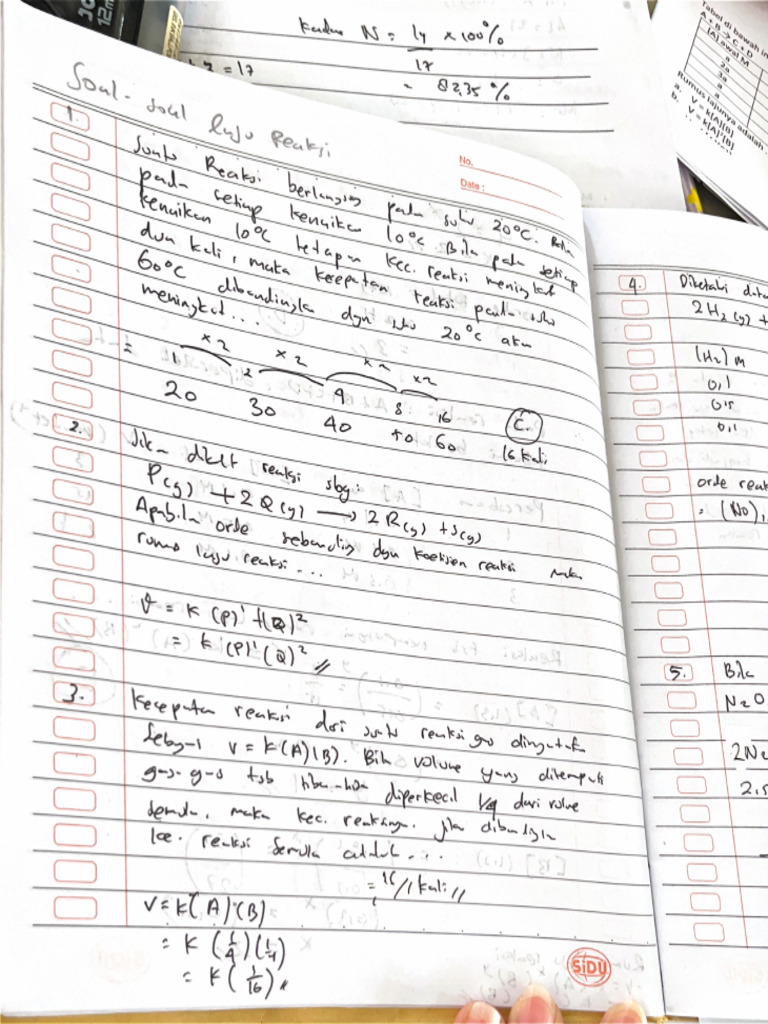 Kadar N = 14 x 100%
17
= 17
= 82,35 %
Tabel di bawah in
A + B → C + D
[A] awal M
a
2a
3a
a
Rumus lajunya adalah
a. V = k[A][B]
b. V = k[A]²[B]
Soal-soal laju Reaksi
No.
Date :
1. Suatu Reaksi berlangsung pada suhu 20°C. Bila
pada setiap kenaikan 10°C Bila pada setiap
kenaikan 10°C tetapan kec. reaksi meningkat
dua kali, maka kecepatan reaksi pada suhu
60°C dibandingkan dgn suhu 20°C akan
meningkat ...
x2 x2 x2 x2
1 2 4 8 16
20 30 40 50 60
C.
16 kali
2. Jika diket reaksi sbg:
P(g) + 2Q(g) → 2R(g) + S(g)
Apabila orde sebanding dgn koefisien reaksi maka
rumus laju reaksi ...
V = K (P)¹ +(Q)²
= K (P)¹ (Q)² //
3. Kecepatan reaksi dari suatu reaksi gas dinyatakan
Sebagai V = K(A)(B). Bila volume yang ditempati
gas-gas tsb diperkecil 1/4 dari volume
semula, maka kec. reaksinya jika dibandingkan
kec. reaksi semula adalah ...
= 16/1 kali //
V = K(A)(B)
= K (1/4)(1/4)
= K (1/16) //
SiDU
4. Diketahui data
2H₂(g) +
(H₂) M
0,1
0,5
0,1
orde reak
= (No)
5. Bila
N₂O
2N₂
2.5